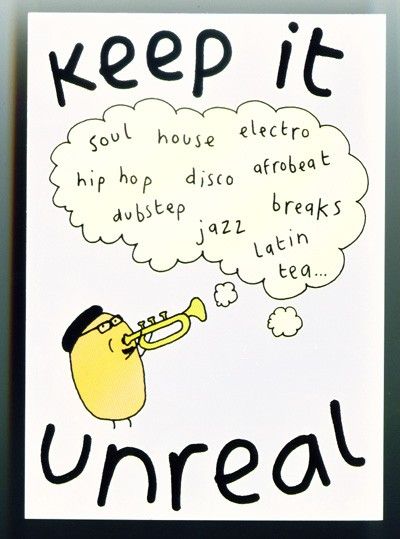 keep it
soul house electro
hip hop disco afrobeat
dubstep jazz breaks
Latin
tea...
unreal